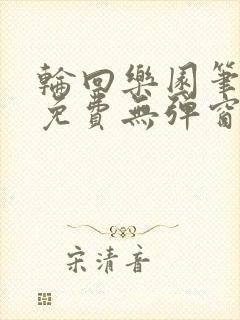 輪回樂園筆
免費無彈窗
宋清音